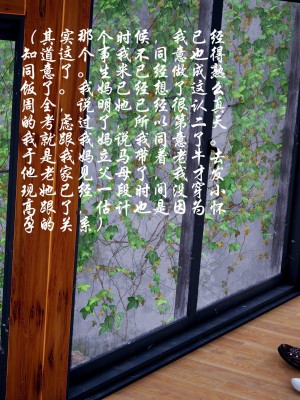 （其实那个时候，我已经
知道这个事我不同意也得
同意了。生米已经做成熟
饭了。我妈已经想了这么
周全。说明她已经很认真
的考虑过了。所以第二天
我就跟我妈说我同意了。
于是我妈立马带着老牛去
他老家见父母了。我才发
现她已经一段时间没穿小
高跟了，估计也是因为怀
孕的关系）